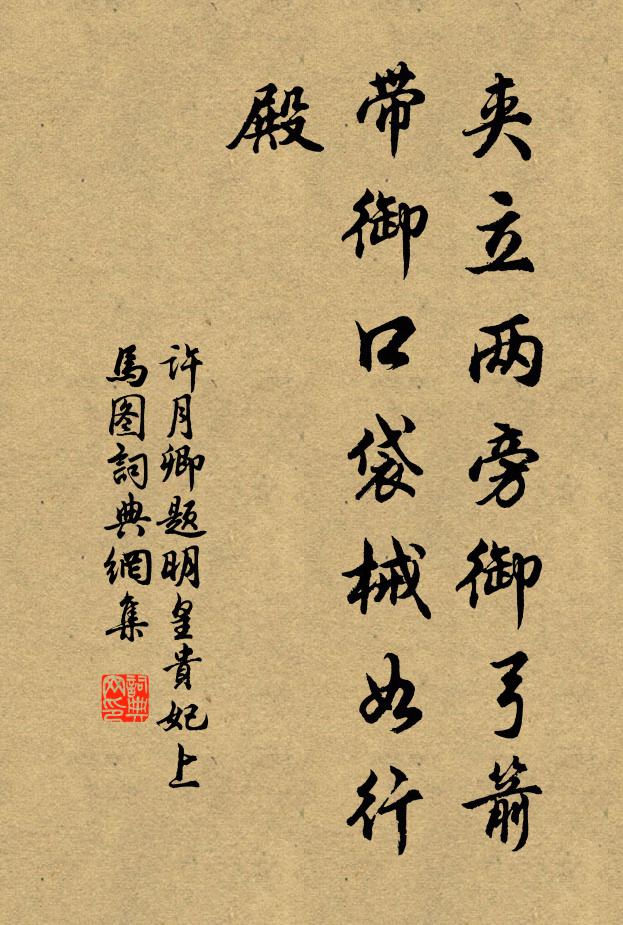 夹立两旁御弓箭
带御口袋械如行
殿
许月卿题明皇貴妃上
馬图詞典網集
詞典
网印